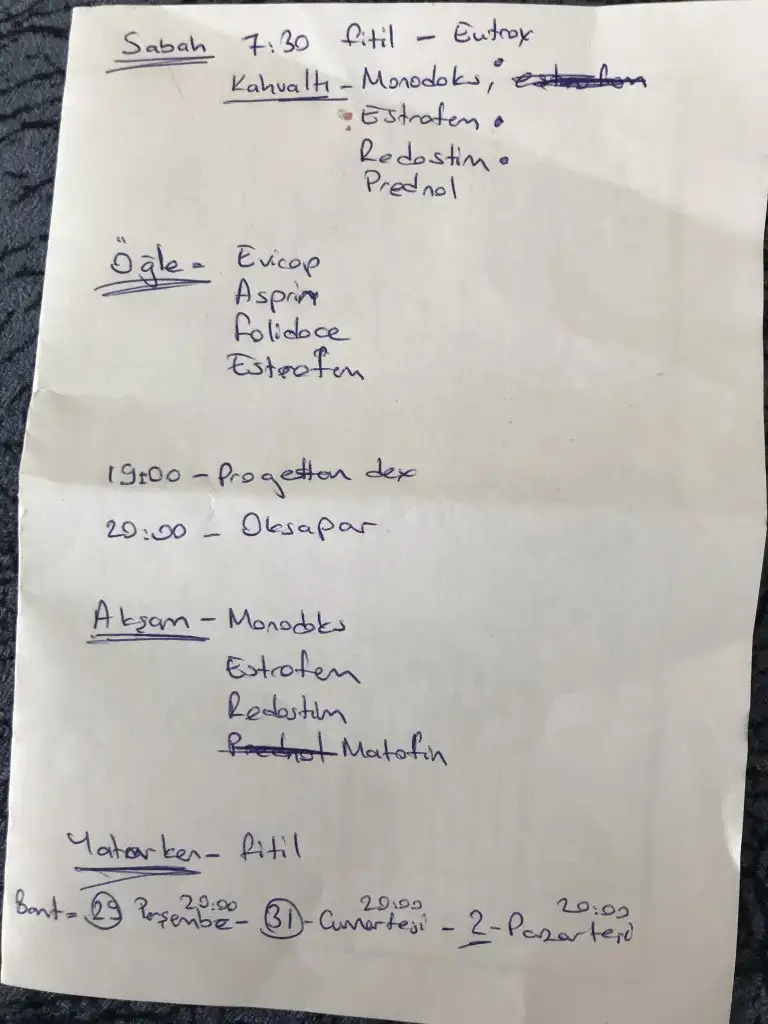 Sabah 7:30 fitil - Eutrox
Kahvaltı - Monodoks, estrofem
Estrofem
Redostim
Prednol
Öğle - Evicap
Asprin
Folidoce
Estrofem
19:00 - Progestan dex
20:00 - Oksapar
Akşam - Monodoks
Estrofem
Redostim
Prednol Matofin
Yatarken - fitil
20:00 20:00 20:00
Bant = 29 Perşembe - 31 - Cumartesi - 2 - Pazartesi